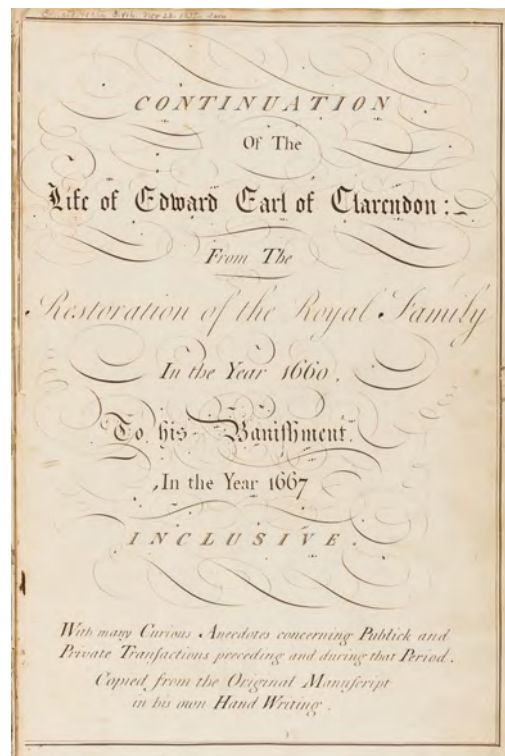 CONTINUATION
Of The
Life of Edward Earl of Clarendon:
From The
Restoration of the Royal Family
In the Year 1660.
To his Banishment.
In the Year 1667
INCLUSIVE.
With many Curious Anecdotes concerning Publick and
Private Tranſactions preceding and during that Period.
Copied from the Original Manuſcript
in his own Hand Writing.